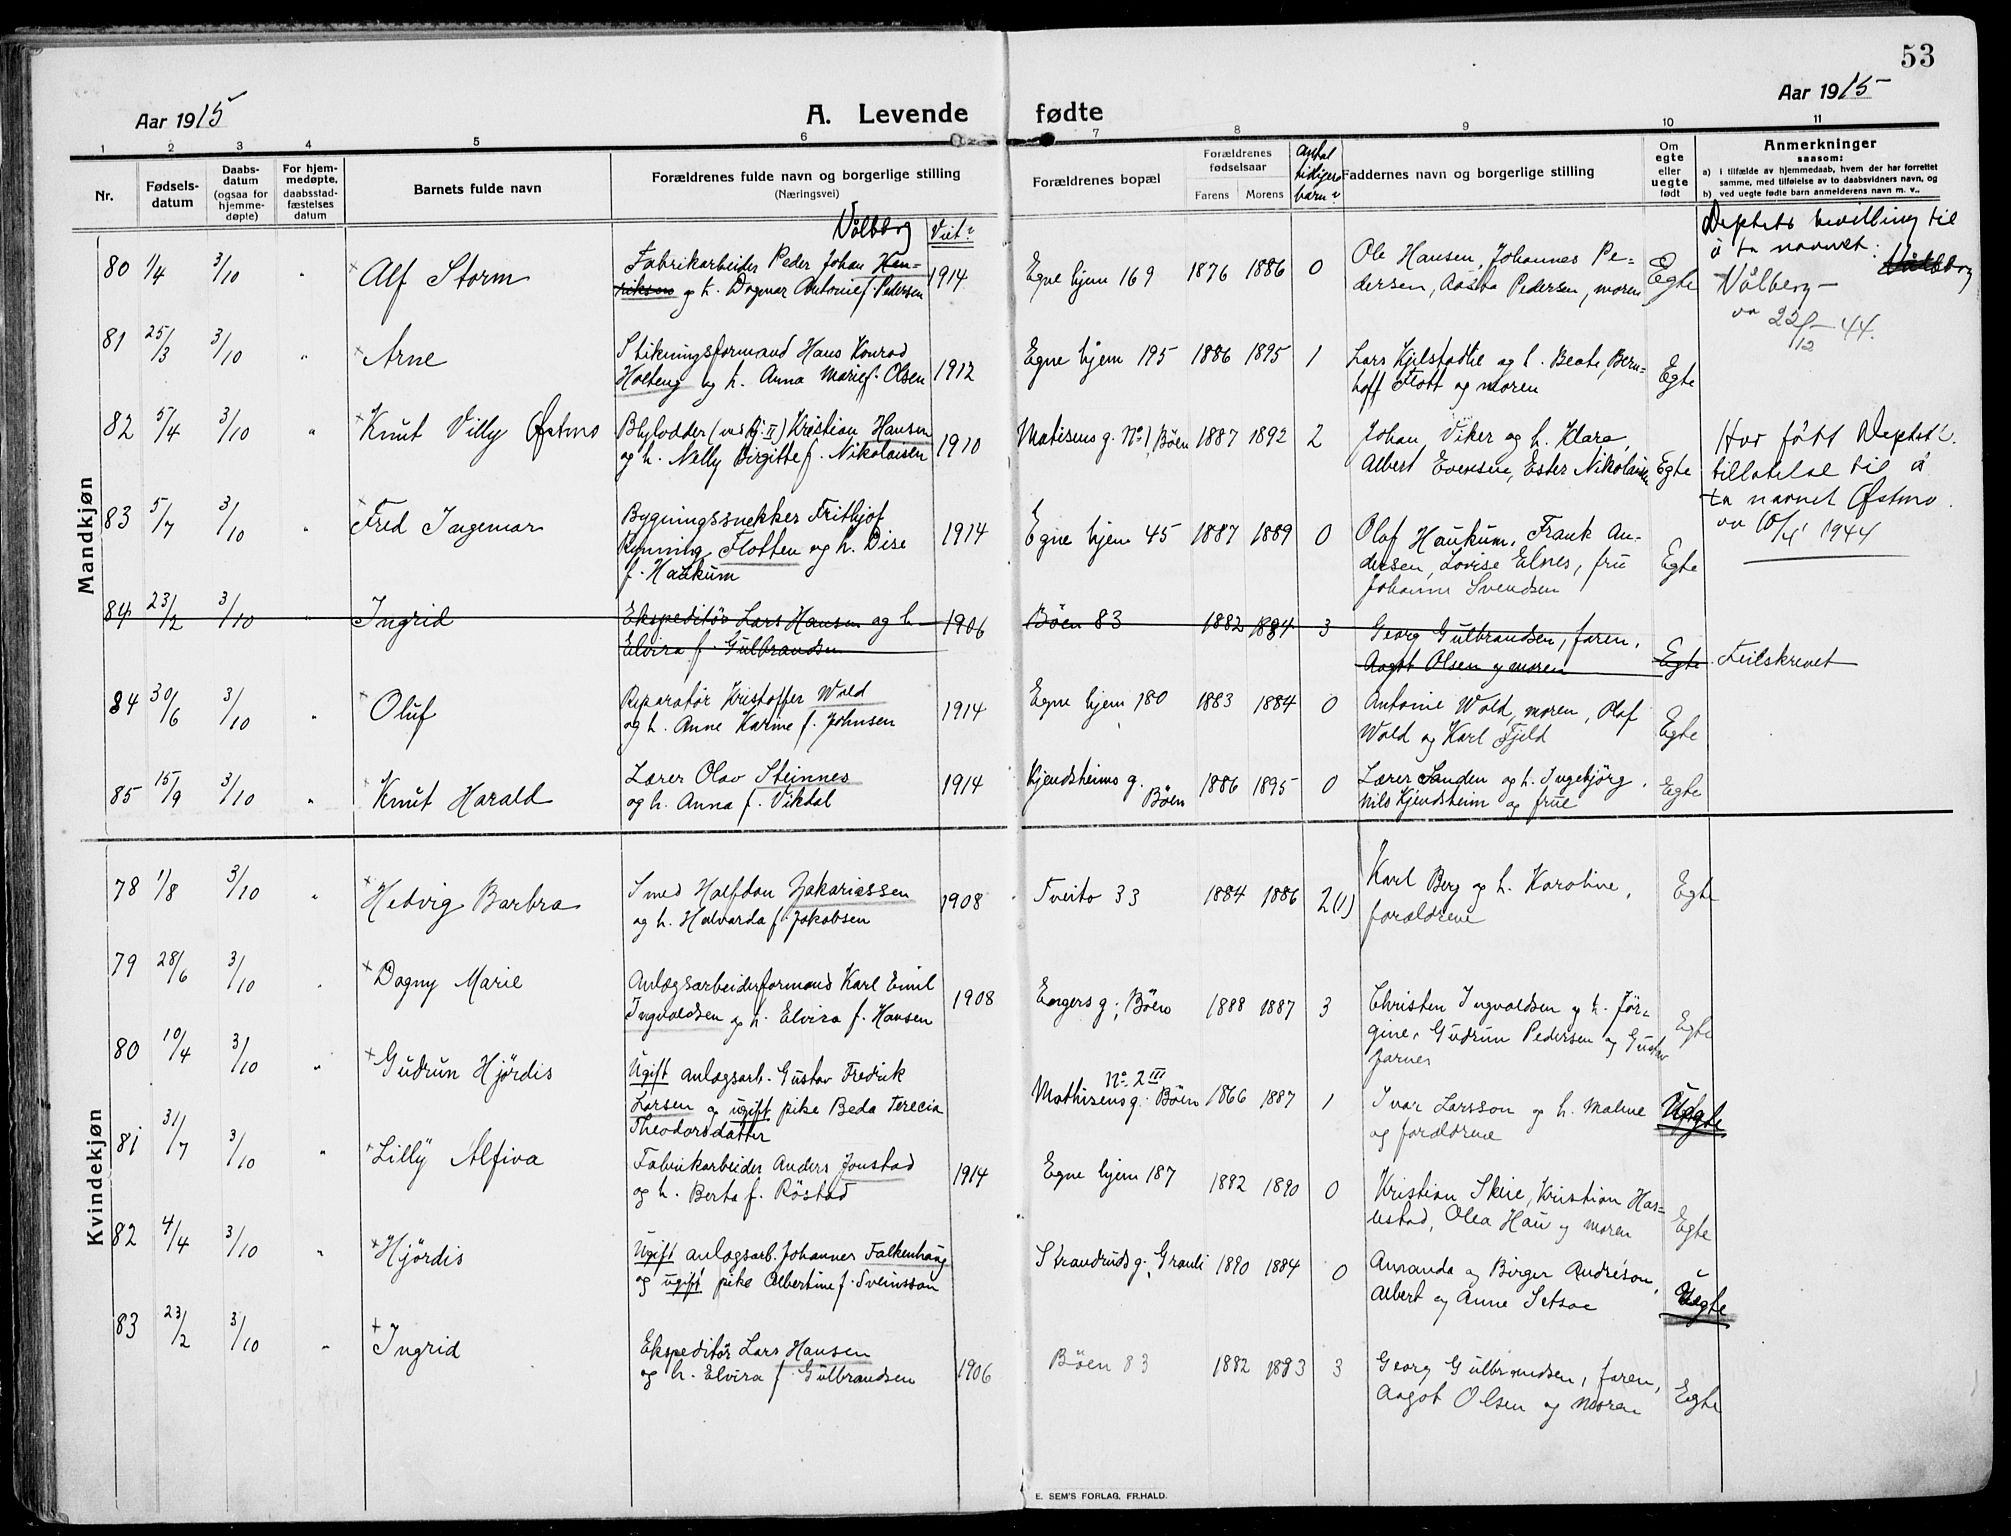 53
Aar 1915
A. Levende fødte
Aar 1915
1 2 3 4 5 6 7 8 9 10 11
Nr.
Fødsels-
datum
Daabs-
datum
(ogsaa for
hjemme-
døpte)
For hjem-
medøpte,
daabsstad-
fæstelses
datum
Barnets fulde navn
Forældrenes fulde navn og borgerlige stilling
(Næringsvei)
Viet:
Forældrenes bopæl
Forældrenes
fødselsaar
Farens Morens
Antal
tidligere
barn:
Faddernes navn og borgerlige stilling
Om
egte
eller
uegte
født
Anmerkninger
saasom:
a) i tilfælde av hjemmedaab, hvem der har forrettet
samme, med tilføielse av to daabsvidners navn, og
b) ved uegte fødte barn anmelderens navn m. v..
Mandkjøn
Vålberg
80 1/4 3/10 " Alf Storm
Fabrikarbeider Peder Johan Hen-
riksen og h. Dagmar Antonie f. Pedersen
1914 Egne hjem 169 1876 1886 0
Ole Hansen, Johannes Pe-
dersen, Aasta Pedersen, moren
Egte
Deptets bevilling til
å ta navnet
Vålberg
Vålberg —
av 22/12 – 44.
81 25/3 3/10 " Arne
Stikningsformand Hans Konrad
Holteng og h. Anna Marie f. Olsen
1912 Egne hjem 195 1886 1895 1
Lars Kjelstadlie og h. Beate, Bern-
hoff Flott og moren
Egte
82 5/4 3/10 " Knut Villy Østmo
Blylodder (ved Rj. II) Kristian Hansen
og h. Nelly Birgitte f. Nikolaisen
1910 Matisens g. No 1, Böen 1887 1892 2
Johan Viker og h. Klara
Albert Evensen, Ester Nikolaisen
Egte
Har fått Deptets
tillatelse til å
ta navnet Østmo.
av 10/11 1944
83 5/7 3/10 " Fred Ingemar
Bygningssnekker Frithjof
Rynning Flotten og h. Dise
f. Haukum
1914 Egne hjem 45 1887 1889 0
Olaf Haukum, Frank An-
dersen, Lovise Elnes, fru
Johanne Svendsen
Egte
84 23/2 3/10 Ingrid
Ekspeditör Lars Hansen og h
Elvira f. Gulbrandsen
1906 Böen 83 1882 1884 3
Georg Gulbrandsen, faren,
Aagot Olsen og moren
Egte
Feilskrevet
84 30/6 3/10 " Oluf
Reparatør Kristoffer Wold
og h. Anne Karine f. Johnsen
1914 Egne hjem 180 1883 1884 0
Antonie Wold, moren, Olaf
Wold og Karl Fjeld
Egte
85 15/9 3/10 " Knut Harald
Lærer Olav Steinnes
og h. Anna f. Vikdal
1914 Kjendsheims g.
Böen
1886 1895 0
Lærer Sanden og h. Ingebjörg,
Nils Kjendsheim og frue
Egte
Kvindekjøn
78 1/8 3/10 " Hedvig Barbra
Smed Halfdan Zakariassen
og h. Halvarda f. Jakobsen
1908 Tveito 33 1884 1886 2(1)
Karl Berg og h. Karoline,
forældrene
Egte
79 28/6 3/10 Dagny Marie
Anlægsarbeiderformand Karl Emil
Ingvaldsen og h. Elvira f. Hansen
1908 Engers g; Böen 1888 1887 3
Christen Ingvaldsen og h. Jör-
gine, Gudrun Pedersen og Gustav
Jarnes
Egte
80 10/4 3/10 " Gudrun Hjördis
Ugift anlægsarb. Gustav Fredrik
Larsen og ugift pike Beda Terecia
Theodorsdatter
No. 2 III
Mathisens g. Böen 1866 1887 1
Ivar Larsson og h. Malme
og forældrene
Uegte
81 31/7 3/10 " Lilly Alfiva
Fabrikarbeider Anders Jonstad
og h. Berta f. Röstad
1914 Egne hjem 187 1882 1890 0
Kristian Skeie, Kristian Har-
estad, Olea Hau og moren
Egte
82 4/4 3/10 " Hjördis
Ugift anlægsarb. Johannes Falkenhaug
og ugift pike Albertine f. Svensson
Strandruds g; Grauli 1890 1884 0
Amanda og Birger Andréson,
Albert og Anne Setsaa
Uegte
83 23/2 3/10 " Ingrid
Ekspeditör Lars Hansen
og h. Elvira f. Gulbrandsen
1906 Böen 83 1882 1883 3
Georg Gulbrandsen, faren,
Aagot Olsen og moren
Egte
E. SEM'S FORLAG, FR.HALD.